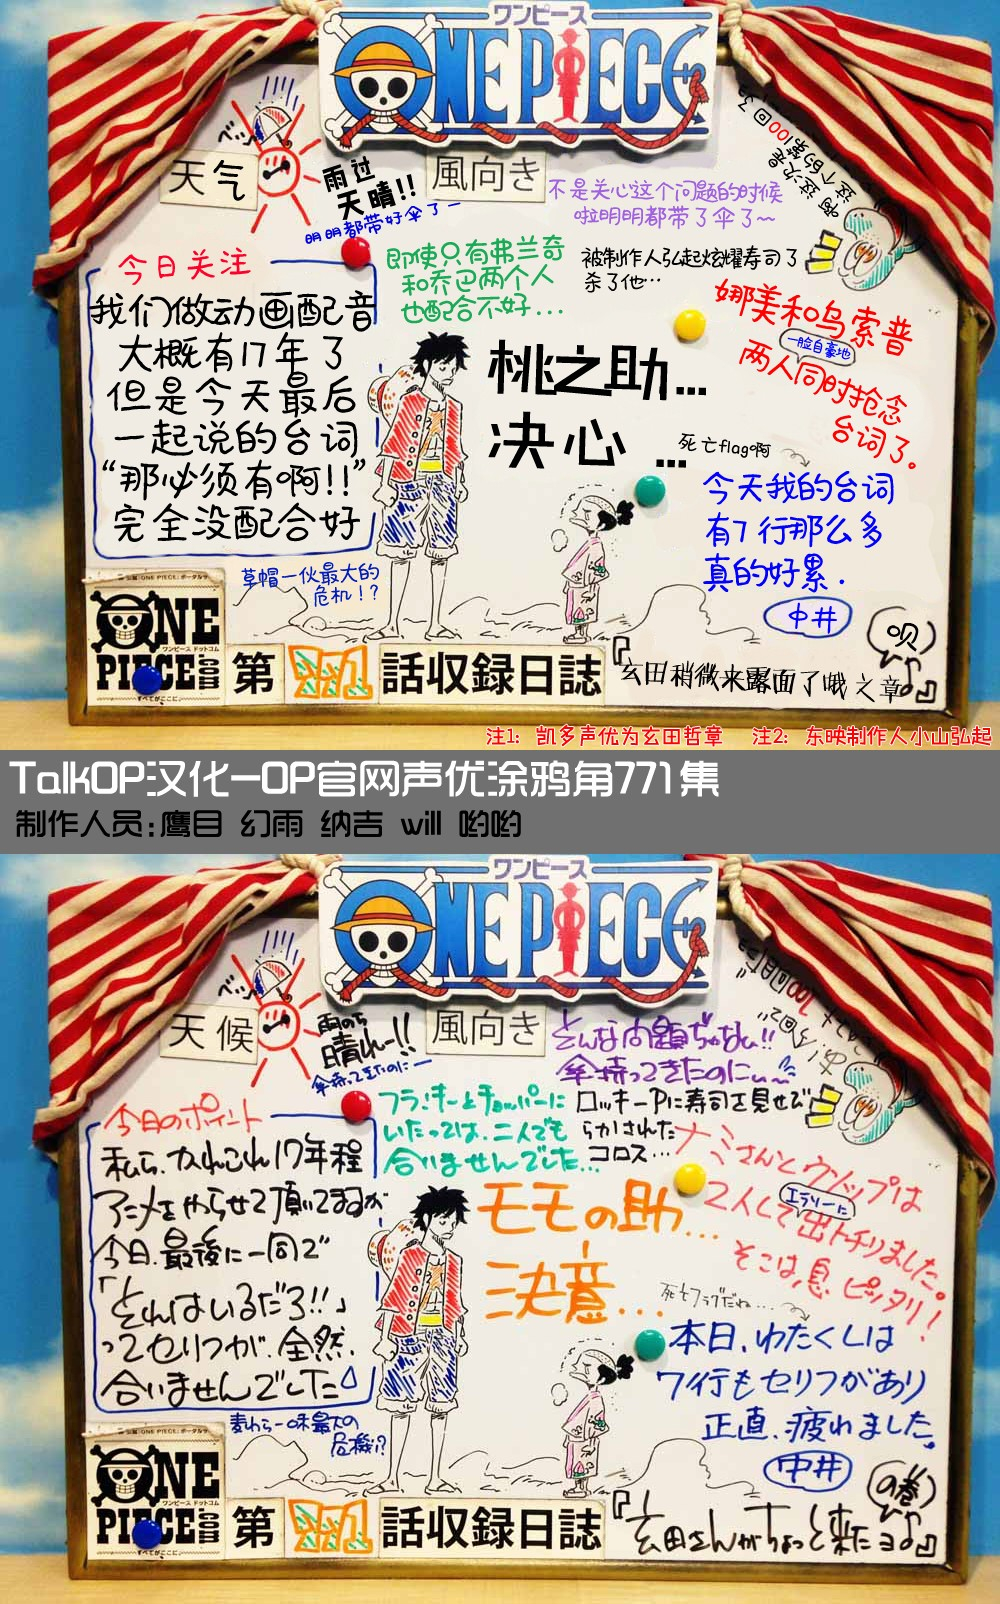 ワンピース
ONE PIECE
天气
ベッ
雨过
天晴!!
明明都带好伞了ー
風向き
不是关心这个问题的时候
啦明明都带了伞了~
啊 这次是
这个的第100回了
今日关注
我们做动画配音
大概有17年了
但是今天最后
一起说的台词
“那必须有啊!!”
完全没配合好
即使只有弗兰奇
和乔巴两个人
也配合不好...
被制作人弘起炫耀寿司了
杀了他…
娜美和乌索普
一脸自豪地
两人同时抢念
台词了。
桃之助...
决心...
死亡flag啊
今天我的台词
有7行那么多
真的好累.
中井
草帽一伙最大的
危机!?
ONE
PIECE.com
ワンピース ドットコム
すべてがここに。
第771話収録日誌
『玄田稍微来露面了哦之章』
呗
注1: 凯多声优为玄田哲章 注2: 东映制作人小山弘起
TalkOP汉化-OP官网声优涂鸦角771集
制作人员:鹰目 幻雨 纳吉 will 哟哟
ワンピース
ONE PIECE
天候
ベッ
雨のち
晴れー!!
傘持ってきたのにー
風向き
そんな問題ぢゃない!!
傘持ってきたのにぃ~
今日のポイント
私ら、かれこれ17年程
アニメをやらせて頂いてますが
今日、最後に一同で
「そんはいるだろ!!」
ってセリフが、全然、
合いませんでした
フランキーとチョッパーに
いたっては、二人でも
合いませんでした...
ロッキーPに寿司を見せび
らかされた
コロス…
ナミさんとウソップは
エラソーに
2人して出トチりました。
そこは、息、ピッタリ!
モモの助...
決意...
死亡フラグだね...
本日、わたくしは
7行もセリフがあり
正直、疲れました。
中井
麦わら一味最大の
危機!?
ONE
PIECE.com
ワンピース ドットコム
すべてがここに。
第771話収録日誌
『玄田さんがちょっと来たョ♪』
の巻